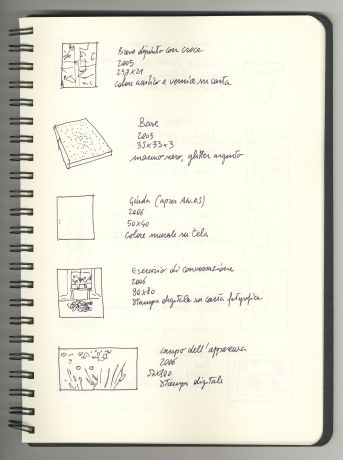 Breve dipinto con croce
2005
29,7x21
colore acrilico e vernice su carta
Base
2005
35x33x3
marmo nero, glitter argento
Giuda (après
2006
50x40
colore murale su tela
Esercizio di conversazione
2006
90x80
stampa digitale su carta fotografica
campo dell'apparenza
2006
x100
stampa digitale